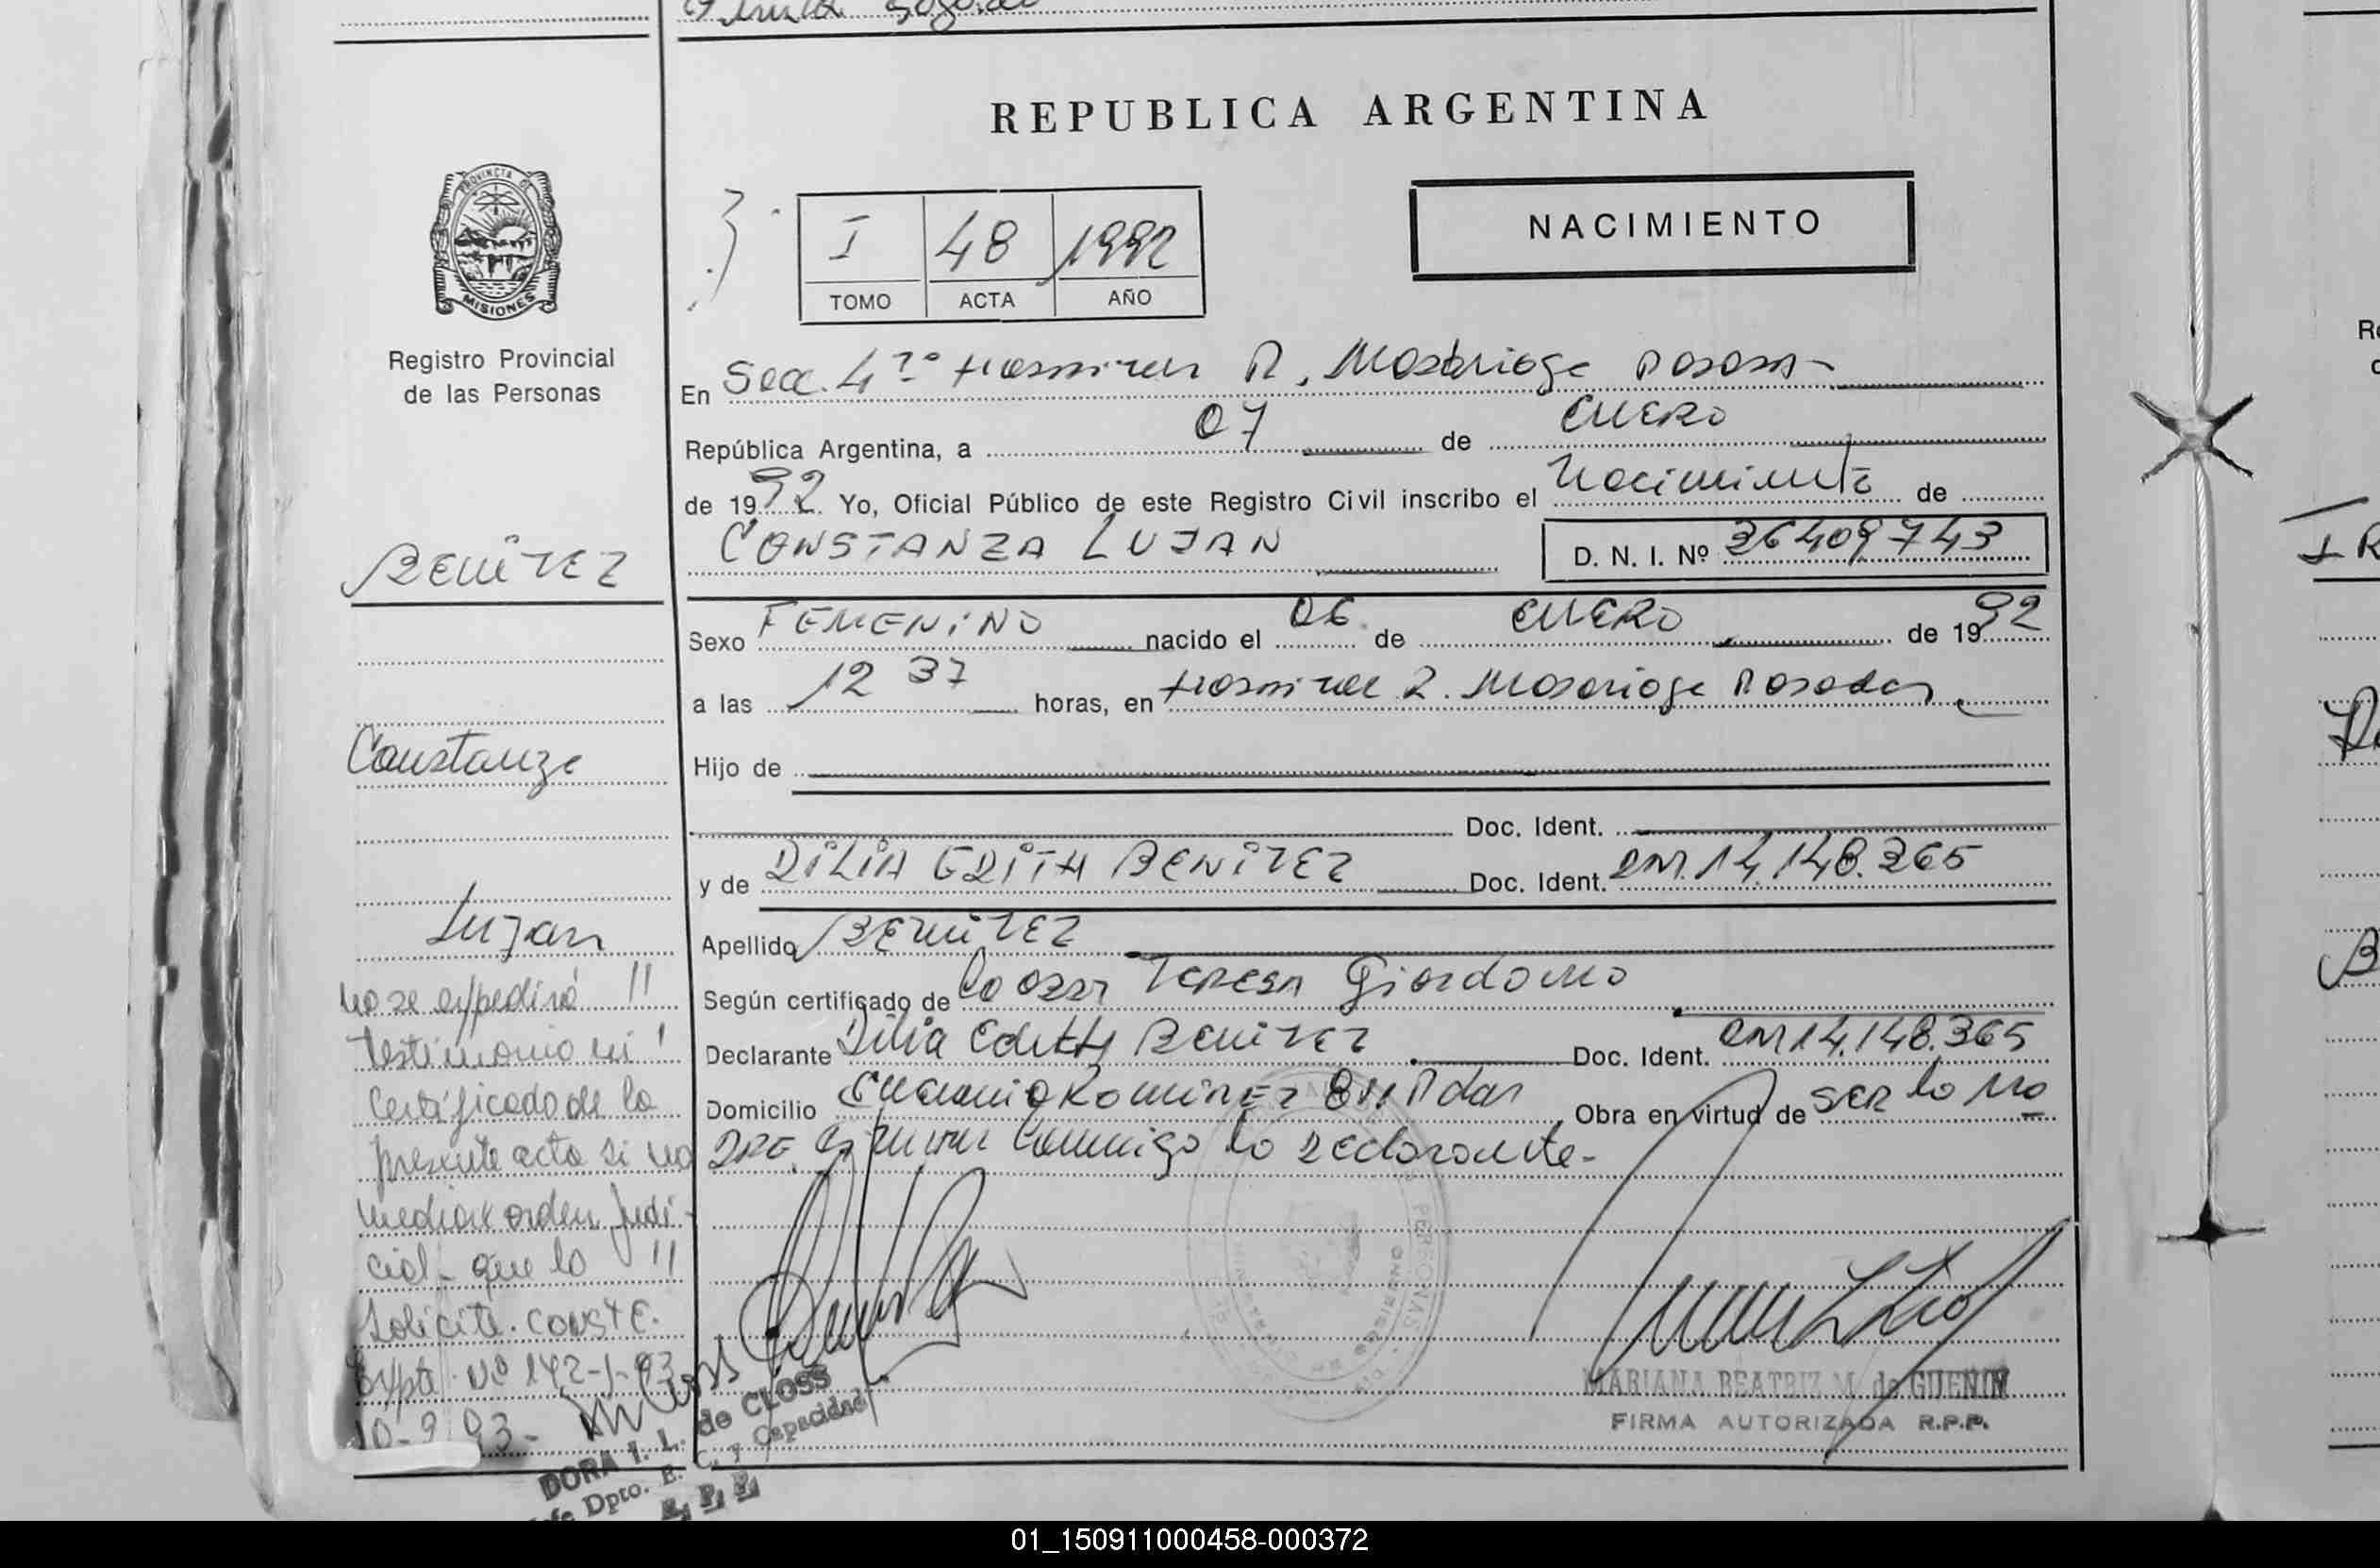 REPUBLICA ARGENTINA
PROVINCIA DE
MISIONES
Registro Provincial
de las Personas
I 48 1992
TOMO ACTA AÑO
NACIMIENTO
En Secc. 4ta Hospital R. Madariaga Posadas
República Argentina, a 07 de ENERO
de 1992 Yo, Oficial Público de este Registro Civil inscribo el Nacimiento de
CONSTANZA LUJAN
D. N. I. Nº 36409743
Sexo FEMENINO nacido el 06 de ENERO de 1992
a las 12 37 horas, en Hospital R. Madariaga Posadas
Hijo de
Doc. Ident.
y de DILIA EDITH BENITEZ Doc. Ident. DNI. 14.148.365
Apellido BENITEZ
Según certificado de la Obst Teresa Giordano
Declarante Dilia Edith BENITEZ Doc. Ident. DNI 14.148.365
Domicilio Ramirez Pdas Obra en virtud de SER la MA
DRE. Firman conmigo la declarante-
MARIANA BEATRIZ M. de GUENIN
FIRMA AUTORIZADA R.P.P.
BENITEZ
Constanza
Lujan
no se expedirá !!
testimonio ni !
Certificado de la
presente acta si no
mediare orden judi-
cial- que lo !!
Solicite. CONSTE.
Expte. Nº 142-J-93
10-9-93-
DORA I. L. de CLOSS
Jefe Dpto. E. C. y Capacidad
R. P. P.
01_150911000458-000372